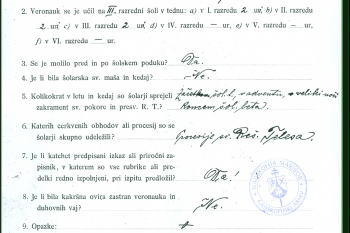 2. Veronauk se je učil na III. razredni šoli v tednu: a) v I. razredu 2 ur, b) v II. razredu
2 ur, c) v III. razredu 2 ur, d) v IV. razredu — ur, e) v V. razredu — ur,
f) v VI. razredu — ur.
3. Se je molilo pred in po šolskem poduku? Da.
4. Je li bila šolarska sv. maša in kedaj? Ne.
5. Kolikokrat v letu in kedaj so šolarji sprejeli Začetkom šol. l., v adventu, o veliki noči
zakrament sv. pokore in presv. R. T.? Koncem šol. leta.
6. Katerih cerkvenih obhodov ali procesij so se
šolarji skupno udeležili? Procesije sv. Reš. Telesa.
7. Je li katehet predpisani izkaz ali priročni za-
pisnik, v katerem so vse rubrike ali pre-
delki redno izpolnjeni, pri izpitu predložil? Da!
8. Je li bila kakšna ovira zastran veronauka in
duhovnij vaj? Ne.
9. Opazke: